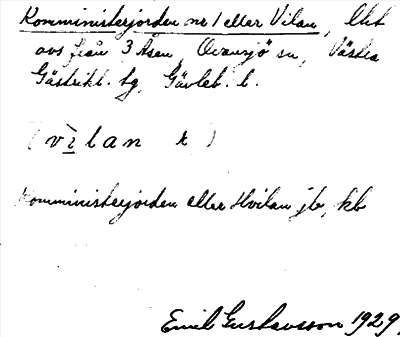 Komministerjorden nr 1 eller Vilan, lht
avs från 3 Åsen, Ovansjö sn, Västra
Gästrikl. tg, Gävleb. l.
(vìlan k)
Komministerjorden eller Hvilan jb, kb
Emil Gustavsson 1929.